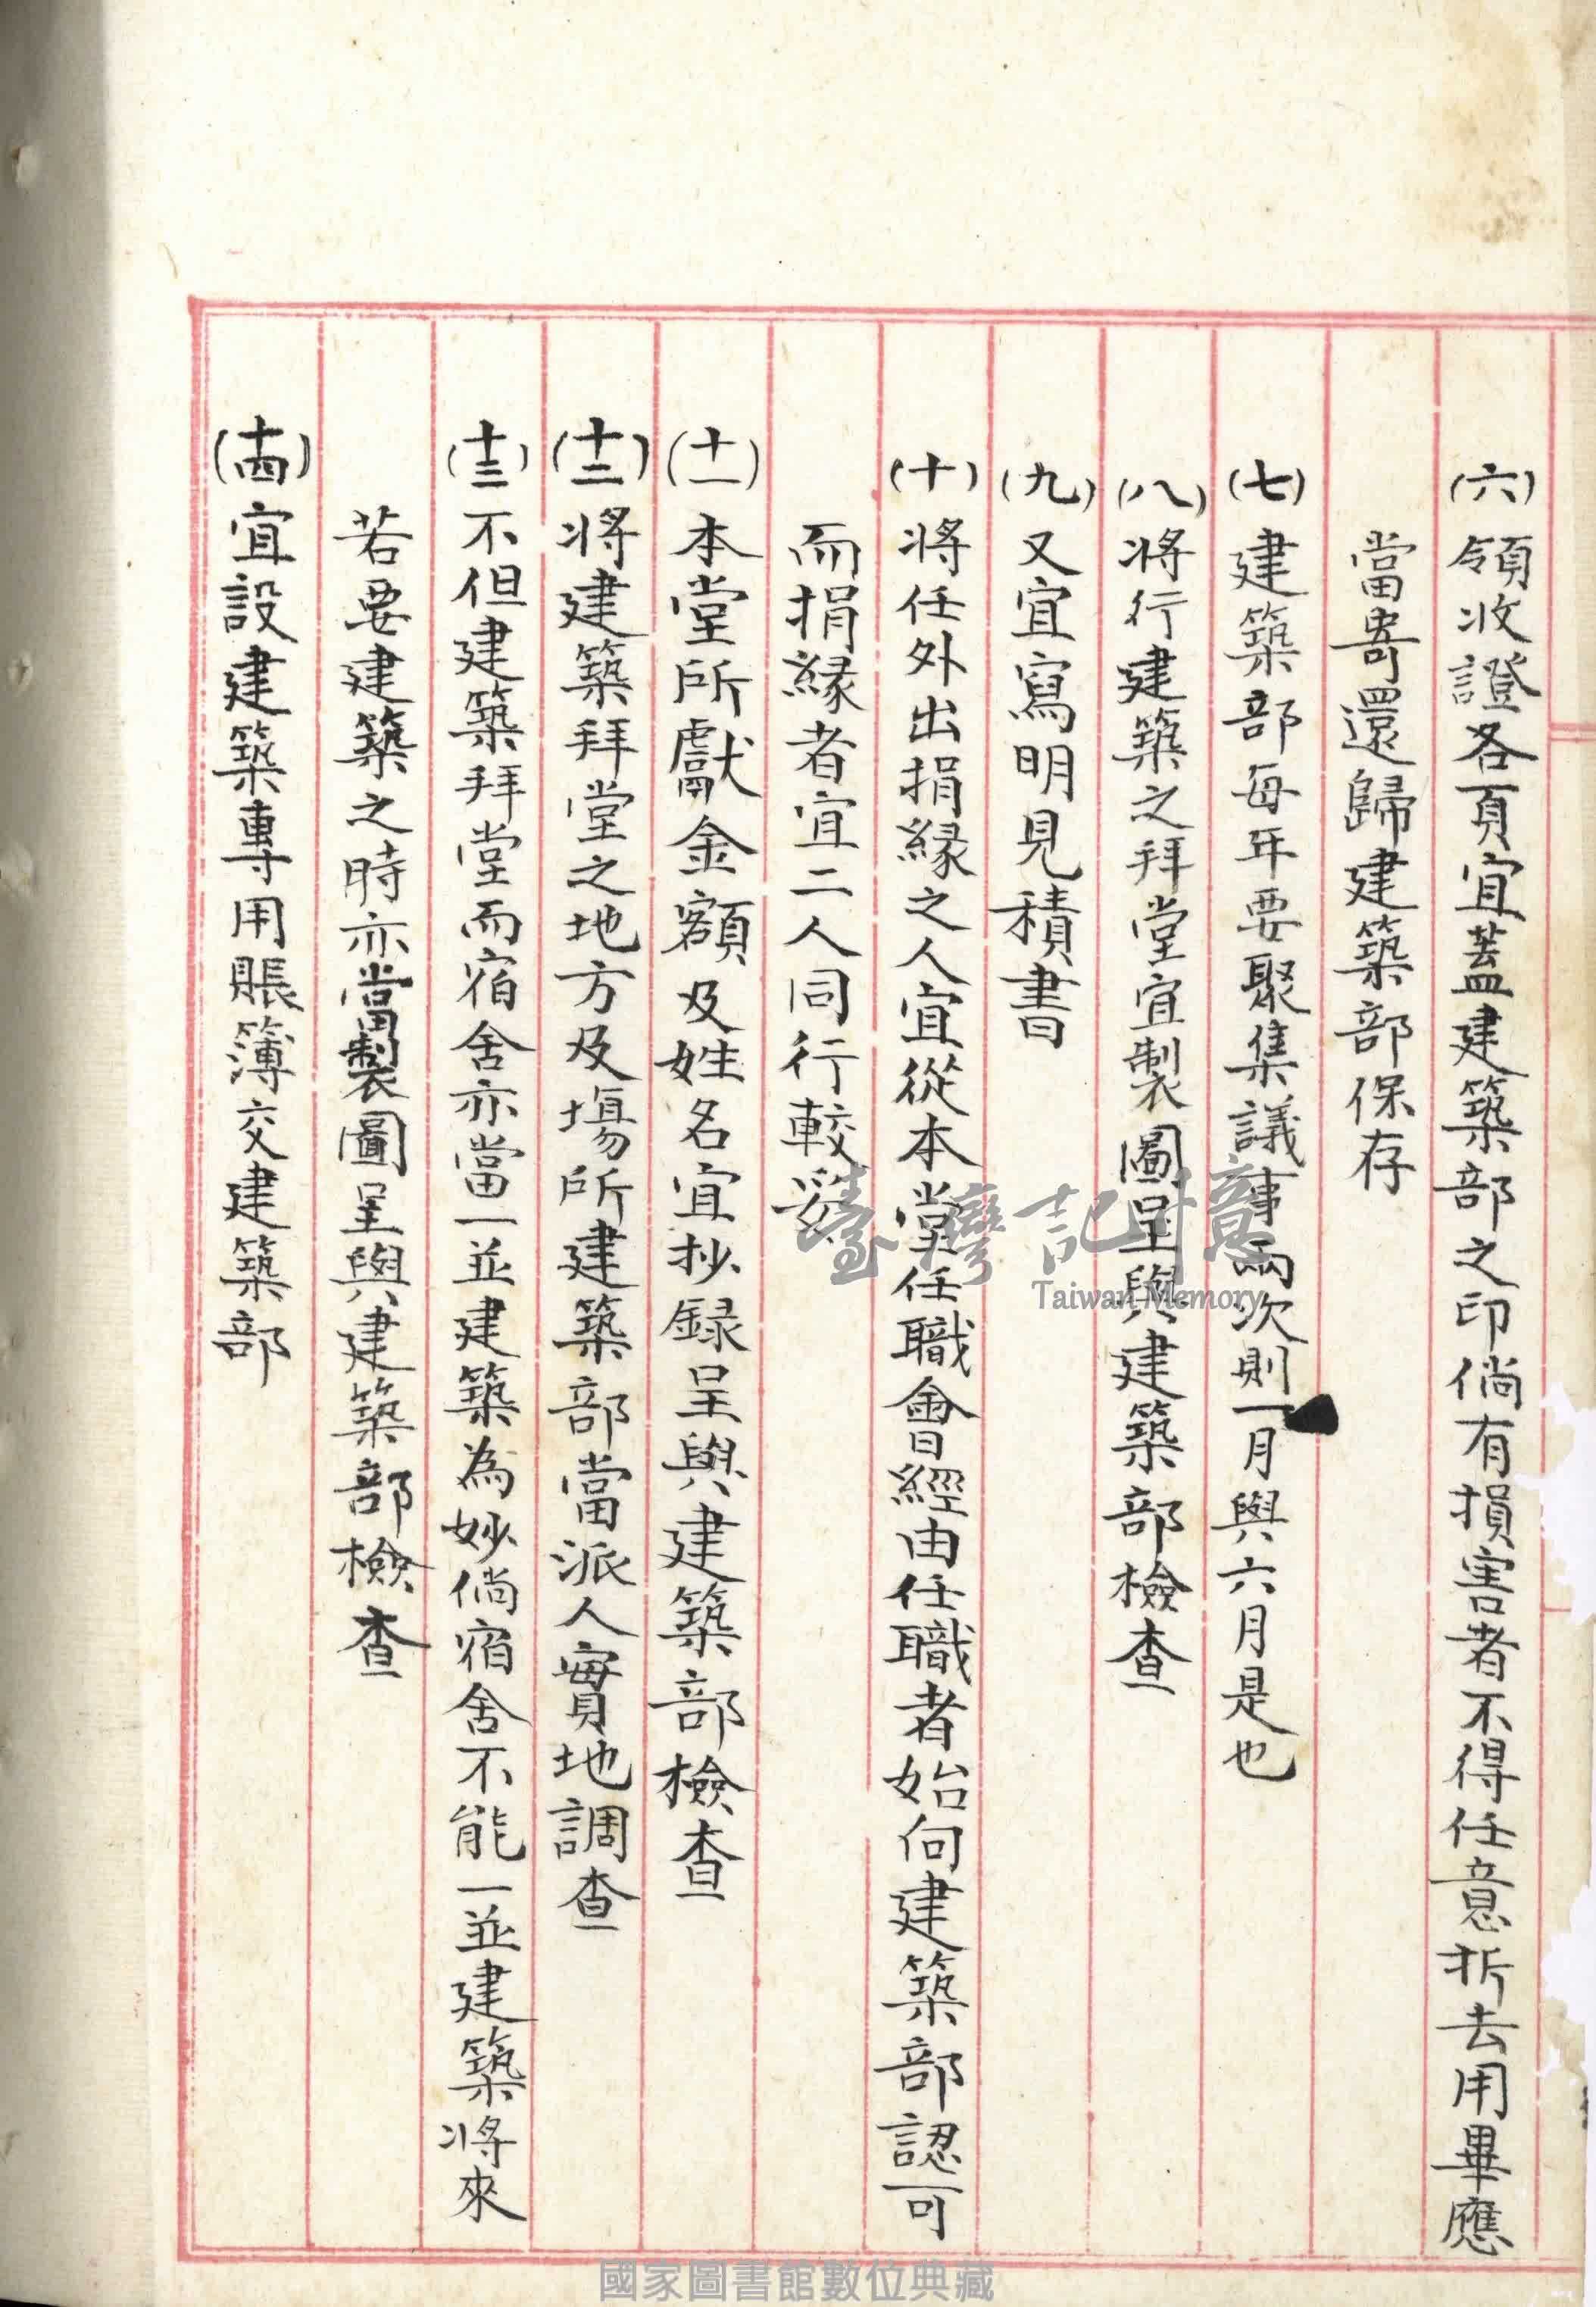 (六)領收證各頁宜蓋建築部之印倘有損害者不得任意折去用畢應
當寄還歸建築部保存
(七)建築部每年要聚集議事兩次則一月與六月是也
(八)將行建築之拜堂宜製圖呈與建築部檢查
(九)又宜寫明見積書
(十)將任外出捐緣之人宜從本堂任職會經由任職者始向建築部認可
而捐緣者宜二人同行較妥
(十一)本堂所獻金額及姓名宜抄録呈與建築部檢查
(十二)將建築拜堂之地方及塲所建築部當派人實地調查
(十三)不但建築拜堂而宿舍亦當一並建築為妙倘宿舍不能一並建築將來
若要建築之時亦當製圖呈與建築部檢查
(十四)宜設建築專用賬簿交建築部
臺灣記憶
Taiwan Memory
國家圖書館數位典藏